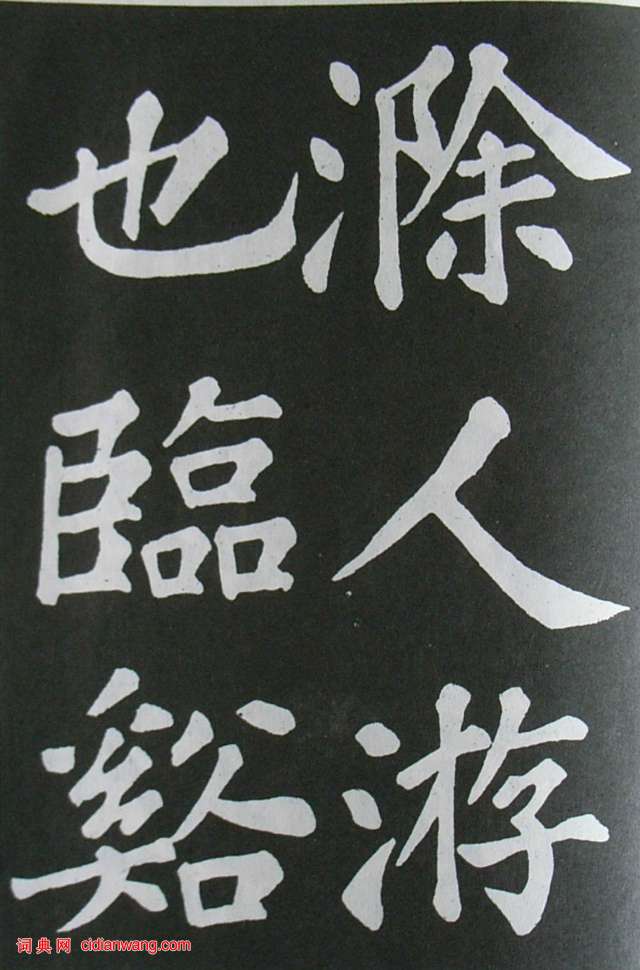 滁人游
也臨谿
词典网 cidianwang.com